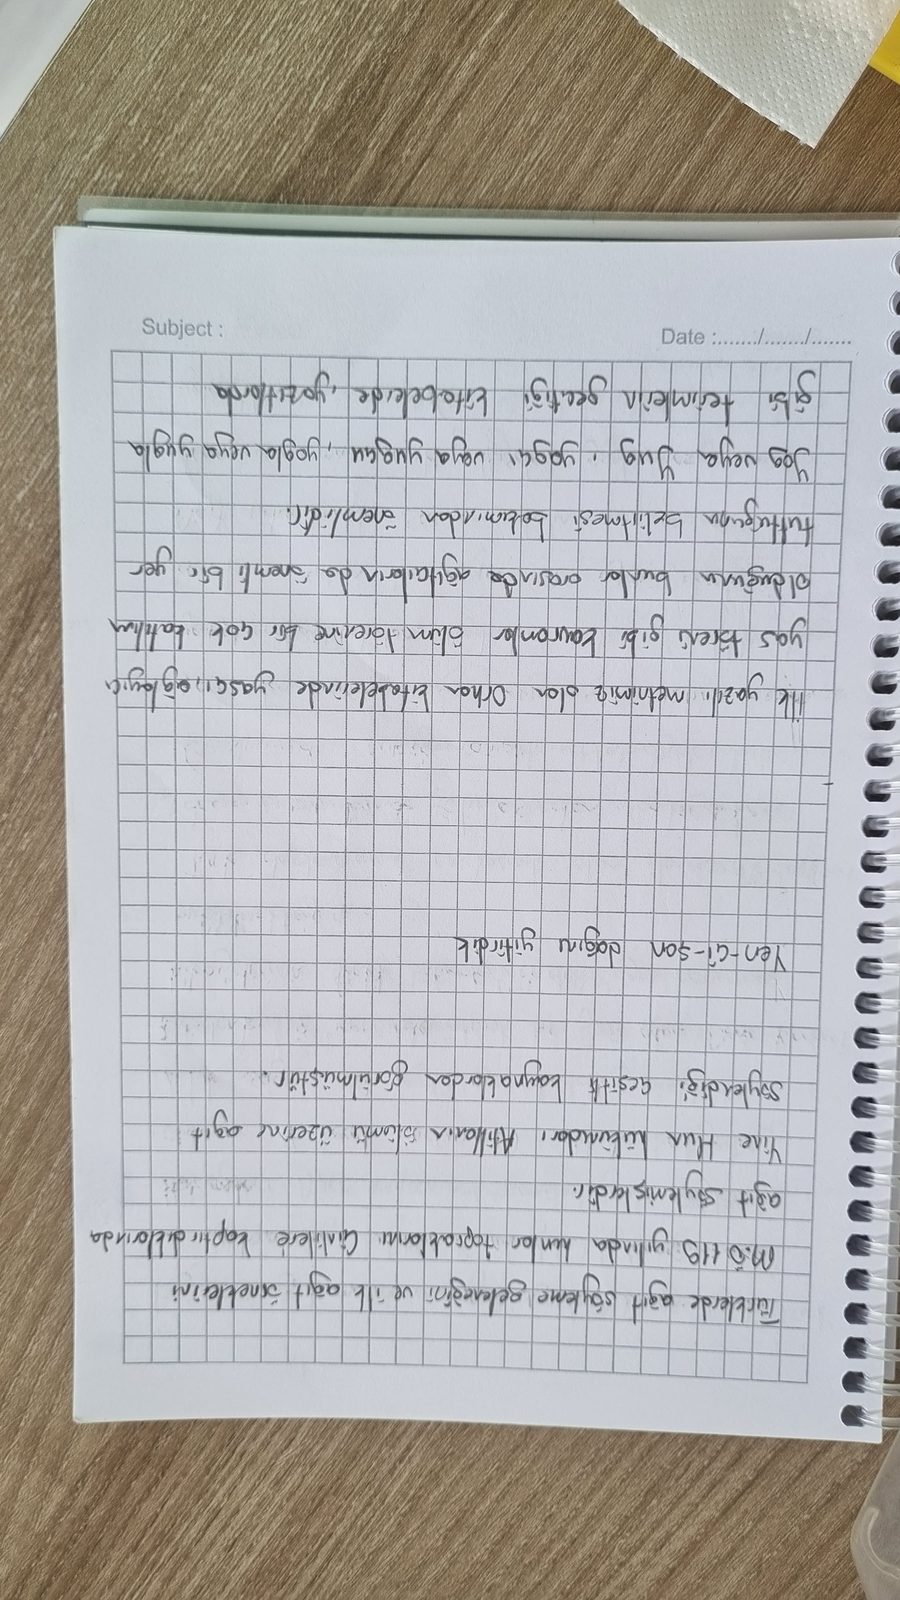 Türklerde ağıt söyleme geleneğini ve ilk ağıt örneklerini
M.Ö 119 yılında hunlar topraklarını Çinlilere kaptırdıklarında
ağıt söylemişlerdir.
Yine Hun hükümdarı Atillanın ölümü üzerine ağıt
söylendiği çeşitli kaynaklardan görülmüştür.
Yen-çi-şan dağını yitirdik
ilk yazılı metnimiz olan Orhon kitabelerinde yasçı, ağlayıcı
yas töreni gibi kavramlar ölüm törenine bir çok katılım
olduğunu bunlar arasında ağıtçıların da önemli bir yer
tuttuğunu belirtmesi bakımından önemlidir.
Yog veya yug, yogçı veya yugçu, yogla veya yugla
gibi terimlerin geçtiği kitabelerde, yazıtlarda
Subject :
Date :......./......./.......